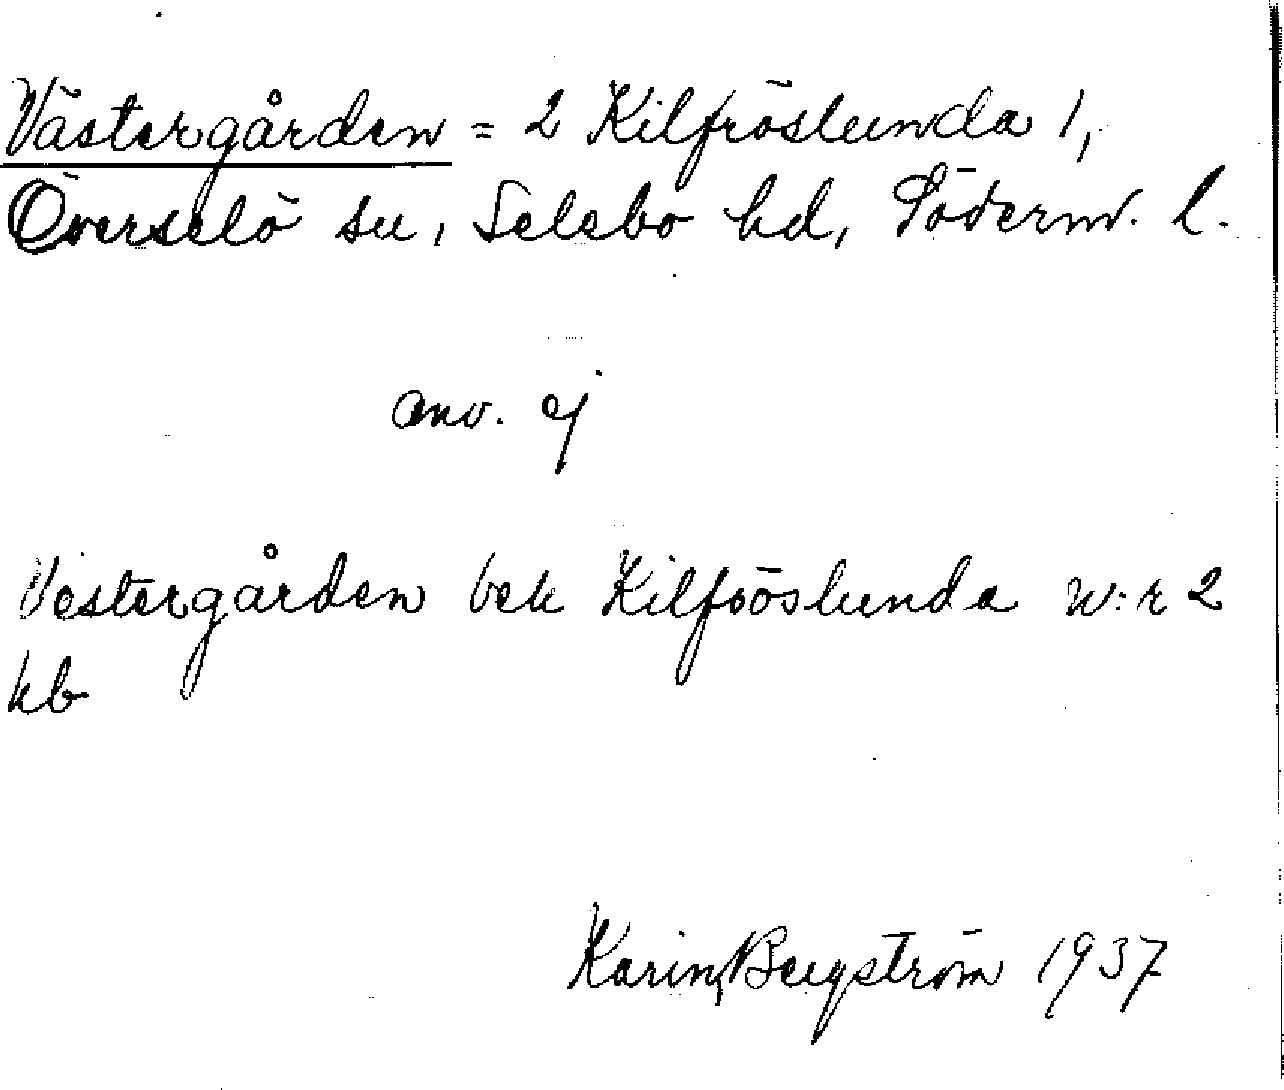 Västergården = 2 Kilfröslunda 1,
Överselö sn, Selebo hd, Söderm. l.
anv. ej
Vestergården bek Kilfröslunda N:r 2
kb
Karin Bergström 1937